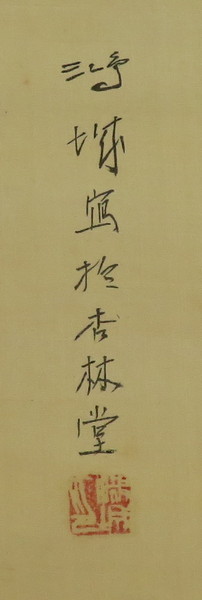 鴻城寫於杏林堂